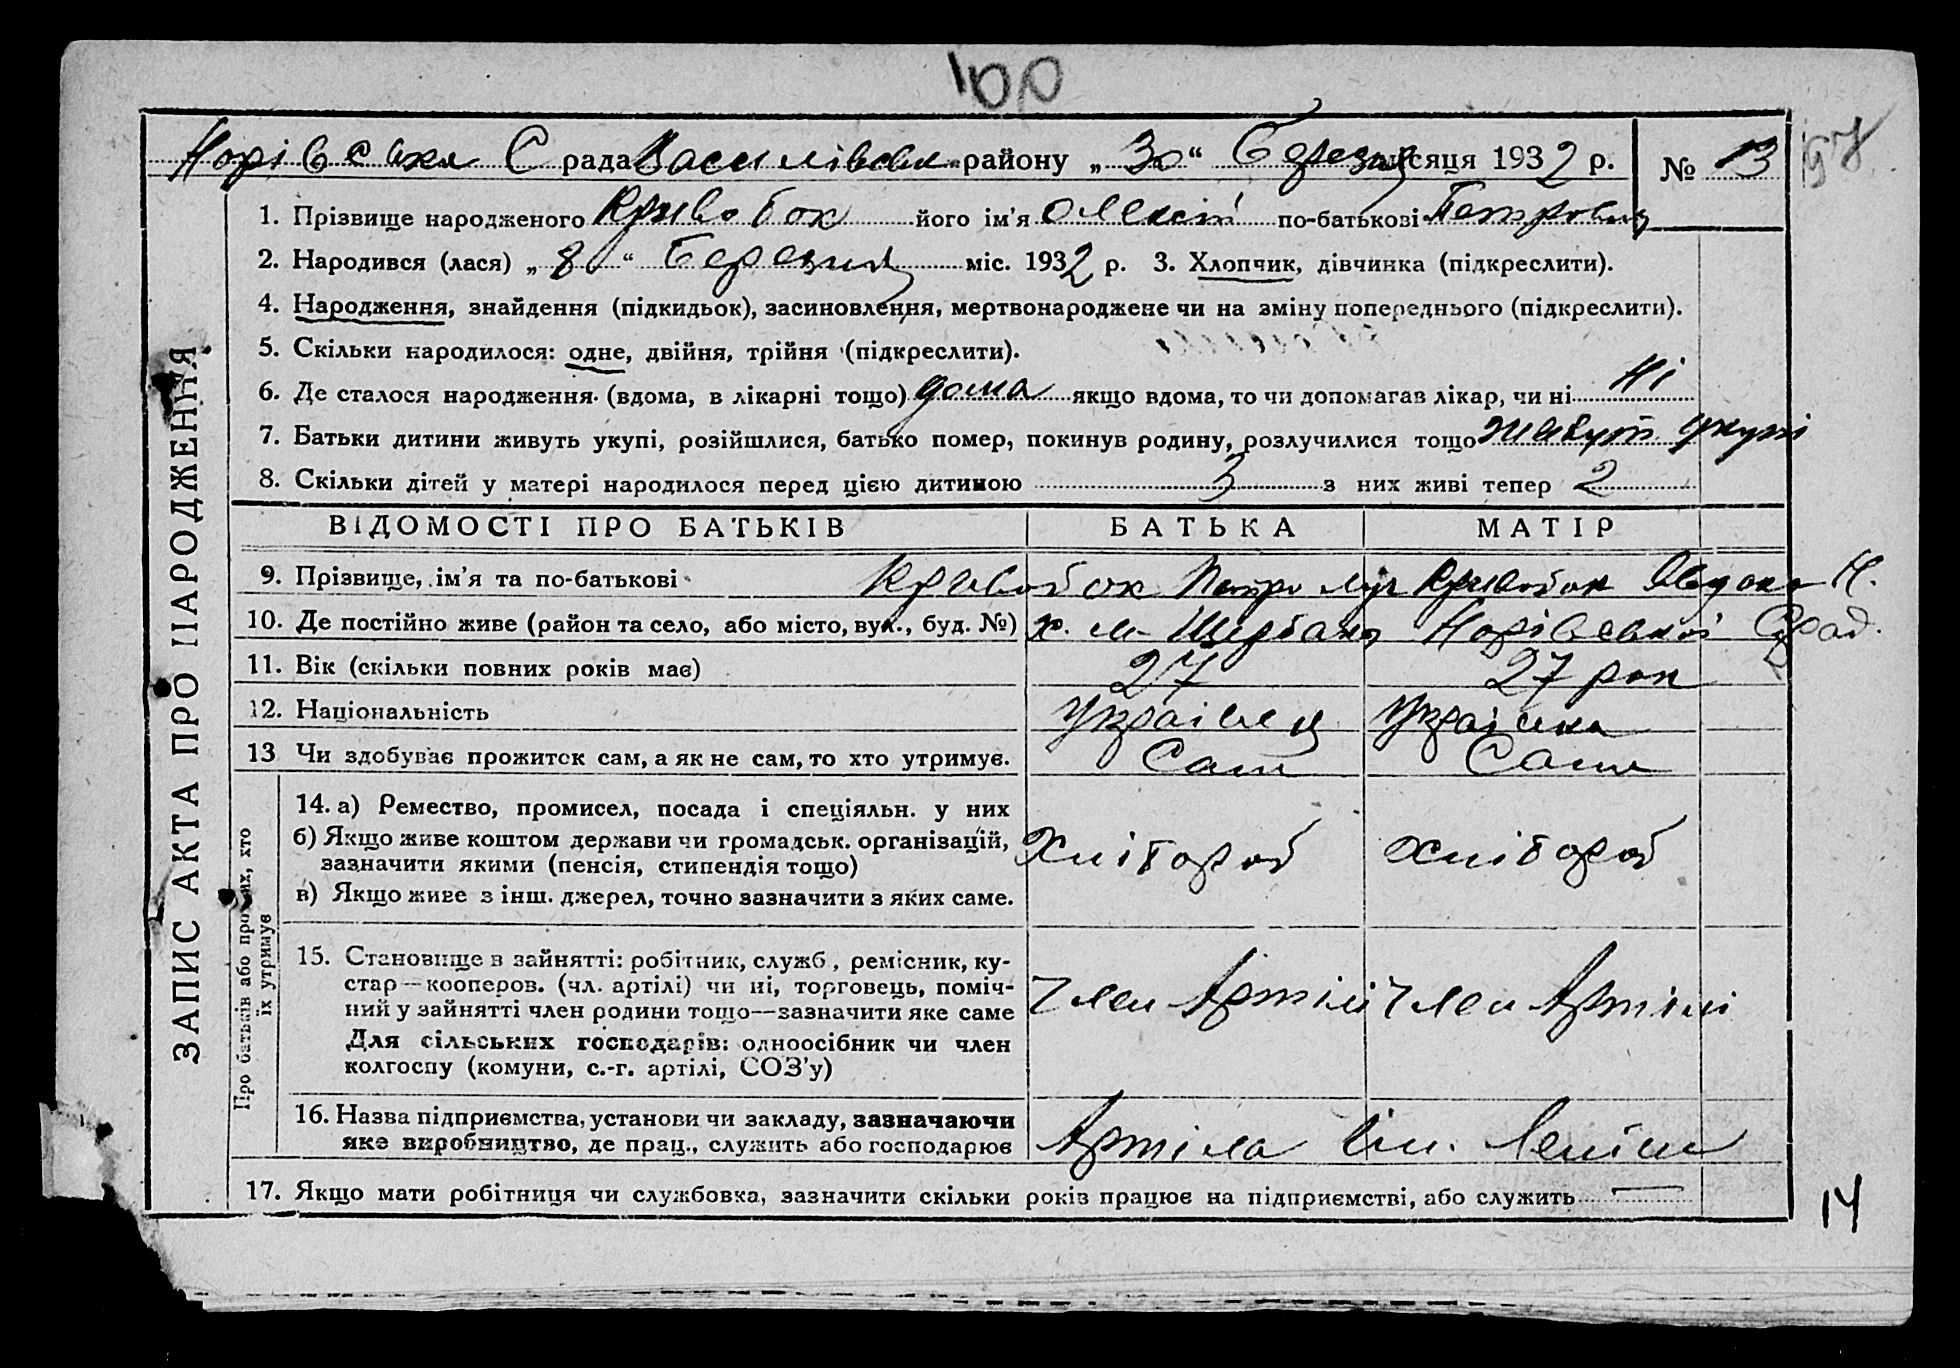 100
Норівська С рада Василівськ району „30“ Березня місяця 1932 р. № 13
197
1. Прізвище народженого Кривобок його ім’я Олексій по-батькові Петрович
2. Народився (лася) „8“ Березня міс. 1932 р. 3. Хлопчик, дівчинка (підкреслити).
4. Народження, знайдення (підкидьок), засиновлення, мертвонароджене чи на зміну попереднього (підкреслити).
5. Скільки народилося: одне, двійня, трійня (підкреслити).
6. Де сталося народження (вдома, в лікарні тощо) дома якщо вдома, то чи допомагав лікар, чи ні Ні
7. Батьки дитини живуть укупі, розійшлися, батько помер, покинув родину, розлучилися тощо живут укупі
8. Скільки дітей у матері народилося перед цією дитиною 3 з них живі тепер 2
ЗАПИС АКТА ПРО НАРОДЖЕННЯ
ВІДОМОСТІ ПРО БАТЬКІВ БАТЬКА МАТІР
9. Прізвище, ім’я та по-батькові Кривобок Петро Кривобок Явдоха Н.
10. Де постійно живе (район та село, або місто, вул., буд. №) х. м- Щербани Норівської Срад.
11. Вік (скільки повних років має) 27 27 рок
12. Національність Українец Українка
13 Чи здобуває прожиток сам, а як не сам, то хто утримує. Сам Сама
Про батьків або про них, хто їх утримує
14. а) Ремество, промисел, посада і спеціяльн. у них
б) Якщо живе коштом держави чи громадськ. організацій,
зазначити якими (пенсія, стипендія тощо)
в) Якщо живе з інш. джерел, точно зазначити з яких саме.
Хлібороб хлібороб
15. Становище в зайнятті: робітник, служб., ремісник, ку-
стар—кооперов. (чл. артілі) чи ні, торговець, поміч-
ний у зайнятті член родини тощо—зазначити яке саме
Член Артілі Член Артілі
Для сільських господарів: одноосібник чи член
колгоспу (комуни, с.-г. артілі, СОЗ’у)
16. Назва підприємства, установи чи закладу, зазначаючи
яке виробництво, де прац., служить або господарює
Артіла Ім. Леніна
17. Якщо мати робітниця чи службовка, зазначити скільки років працює на підприємстві, або служить —
14